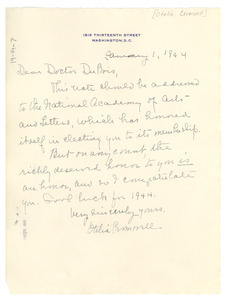 [Otelia Cromwell]
1815 THIRTEENTH STREET
WASHINGTON, D.C.
January 1, 1944
Dear Doctor DuBois,
This note should be addressed
to the National Academy of Arts
and Letters, which has honored
itself in electing you to its membership.
But on any count the
richly deserved honor to you is
an honor, and so I congratulate
you. Good luck for 1944.
Very sincerely yours,
Otelia Cromwell